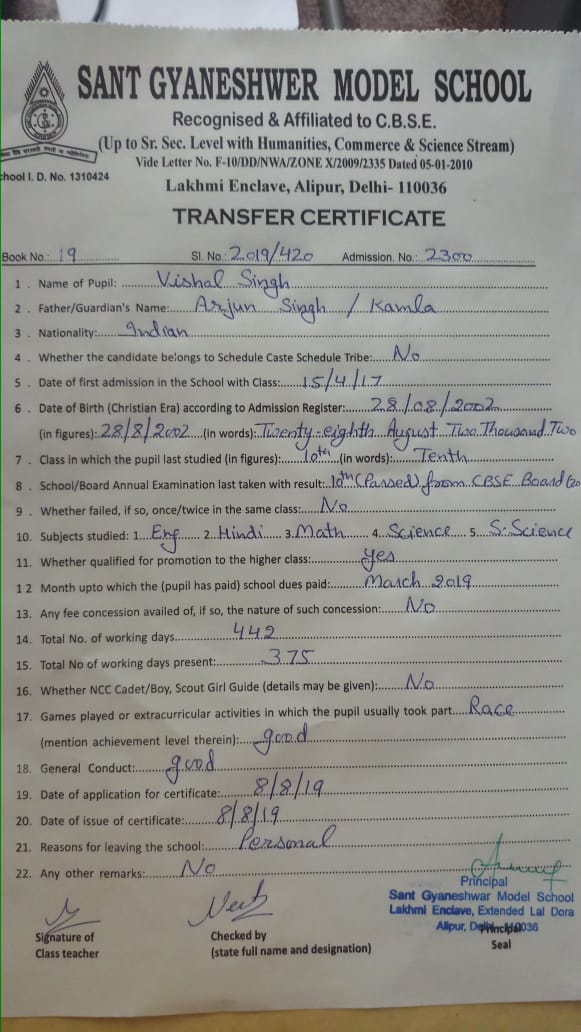 SANT GYANESHWER MODEL SCHOOL
Recognised & Affiliated to C.B.S.E.
(Up to Sr. Sec. Level with Humanities, Commerce & Science Stream)
Vide Letter No. F-10/DD/NWA/ZONE X/2009/2335 Dated 05-01-2010
hool I. D. No. 1310424
Lakhmi Enclave, Alipur, Delhi- 110036
TRANSFER CERTIFICATE
Book No.: 19 Sl. No.: 2019/420 Admission, No.: 2300
1 . Name of Pupil: Vishal Singh
2 . Father/Guardian's Name: Arjun Singh / Kamla
3 . Nationality: Indian
4 . Whether the candidate belongs to Schedule Caste Schedule Tribe: No
5 . Date of first admission in the School with Class: 15/4/17
6 . Date of Birth (Christian Era) according to Admission Register: 28/08/2002
(in figures): 28/8/2002 (in words): Twenty-eighth August Two Thousand Two
7 . Class in which the pupil last studied (in figures): 10th (in words): Tenth
8 . School/Board Annual Examination last taken with result: 10th (Passed) from CBSE Board (20
9 . Whether failed, if so, once/twice in the same class: No
10. Subjects studied: 1. Eng 2. Hindi 3. Math 4. Science 5. S. Science
11. Whether qualified for promotion to the higher class: yes
12 Month upto which the (pupil has paid) school dues paid: March 2019
13. Any fee concession availed of, if so, the nature of such concession: No
14. Total No. of working days 442
15. Total No of working days present: 375
16. Whether NCC Cadet/Boy, Scout Girl Guide (details may be given): No
17. Games played or extracurricular activities in which the pupil usually took part Race
(mention achievement level therein): good
18. General Conduct: good
19. Date of application for certificate: 8/8/19
20. Date of issue of certificate: 8/8/19
21. Reasons for leaving the school: Personal
22. Any other remarks: No
Principal
Sant Gyaneshwar Model School
Lakhmi Enclave, Extended Lal Dora
Alipur, Delhi-110036
Signature of
Class teacher
Checked by
(state full name and designation)
Principal
Seal